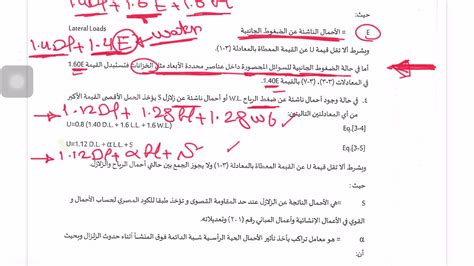 1.4Dl + 1.6E + 1.6Ll
حيث:
E = الأحمال الناشئة عن الضغوط الجانبية Lateral Loads
1.4Dl + 1.4E water
وبشرط ألا تقل قيمة U عن القيمة المعطاة بالمعادلة (٣-١)
أما في حالة الضغوط الجانبية للسوائل المحصورة داخل عناصر محددة الأبعاد مثل الخزانات فتستبدل القيمة 1.60E
في المعادلات (٣-٢)، (٣-٧) بالقيمة 1.40E.
٤. في حالة وجود أحمال ناشئة عن ضغط الرياح W.L أو أحمال ناشئة عن زلازل S يؤخذ الحمل الأقصى القيمة الأكبر
من أي المعادلتين التاليتين:
1.12Dl + 1.28Ll + 1.28wl
U=0.8 (1.40 D.L + 1.6 L.L + 1.6 W.L) Eq.[3-4]
U=1.12 D.L + α L.L + S Eq.[3-5]
1.12Dl + αLl + S
وبشرط ألا تقل قيمة U عن القيمة المعطاة بالمعادلة (٣-١) ولا يجوز الجمع بين حالتي أحمال الرياح والزلازل.
حيث:
S =هي الأحمال الناتجة عن الزلازل عند حد المقاومة القصوى و تؤخذ طبقا للكود المصري لحساب الأحمال و
القوي في الأعمال الإنشائية وأعمال المباني رقم (٢٠١) وتعديلاته.
α = هو معامل تراكب يأخذ تأثير الأحمال الحية الرأسية شبة الدائمة فوق المنشأ أثناء حدوث الزلزال وبحيث
أن: